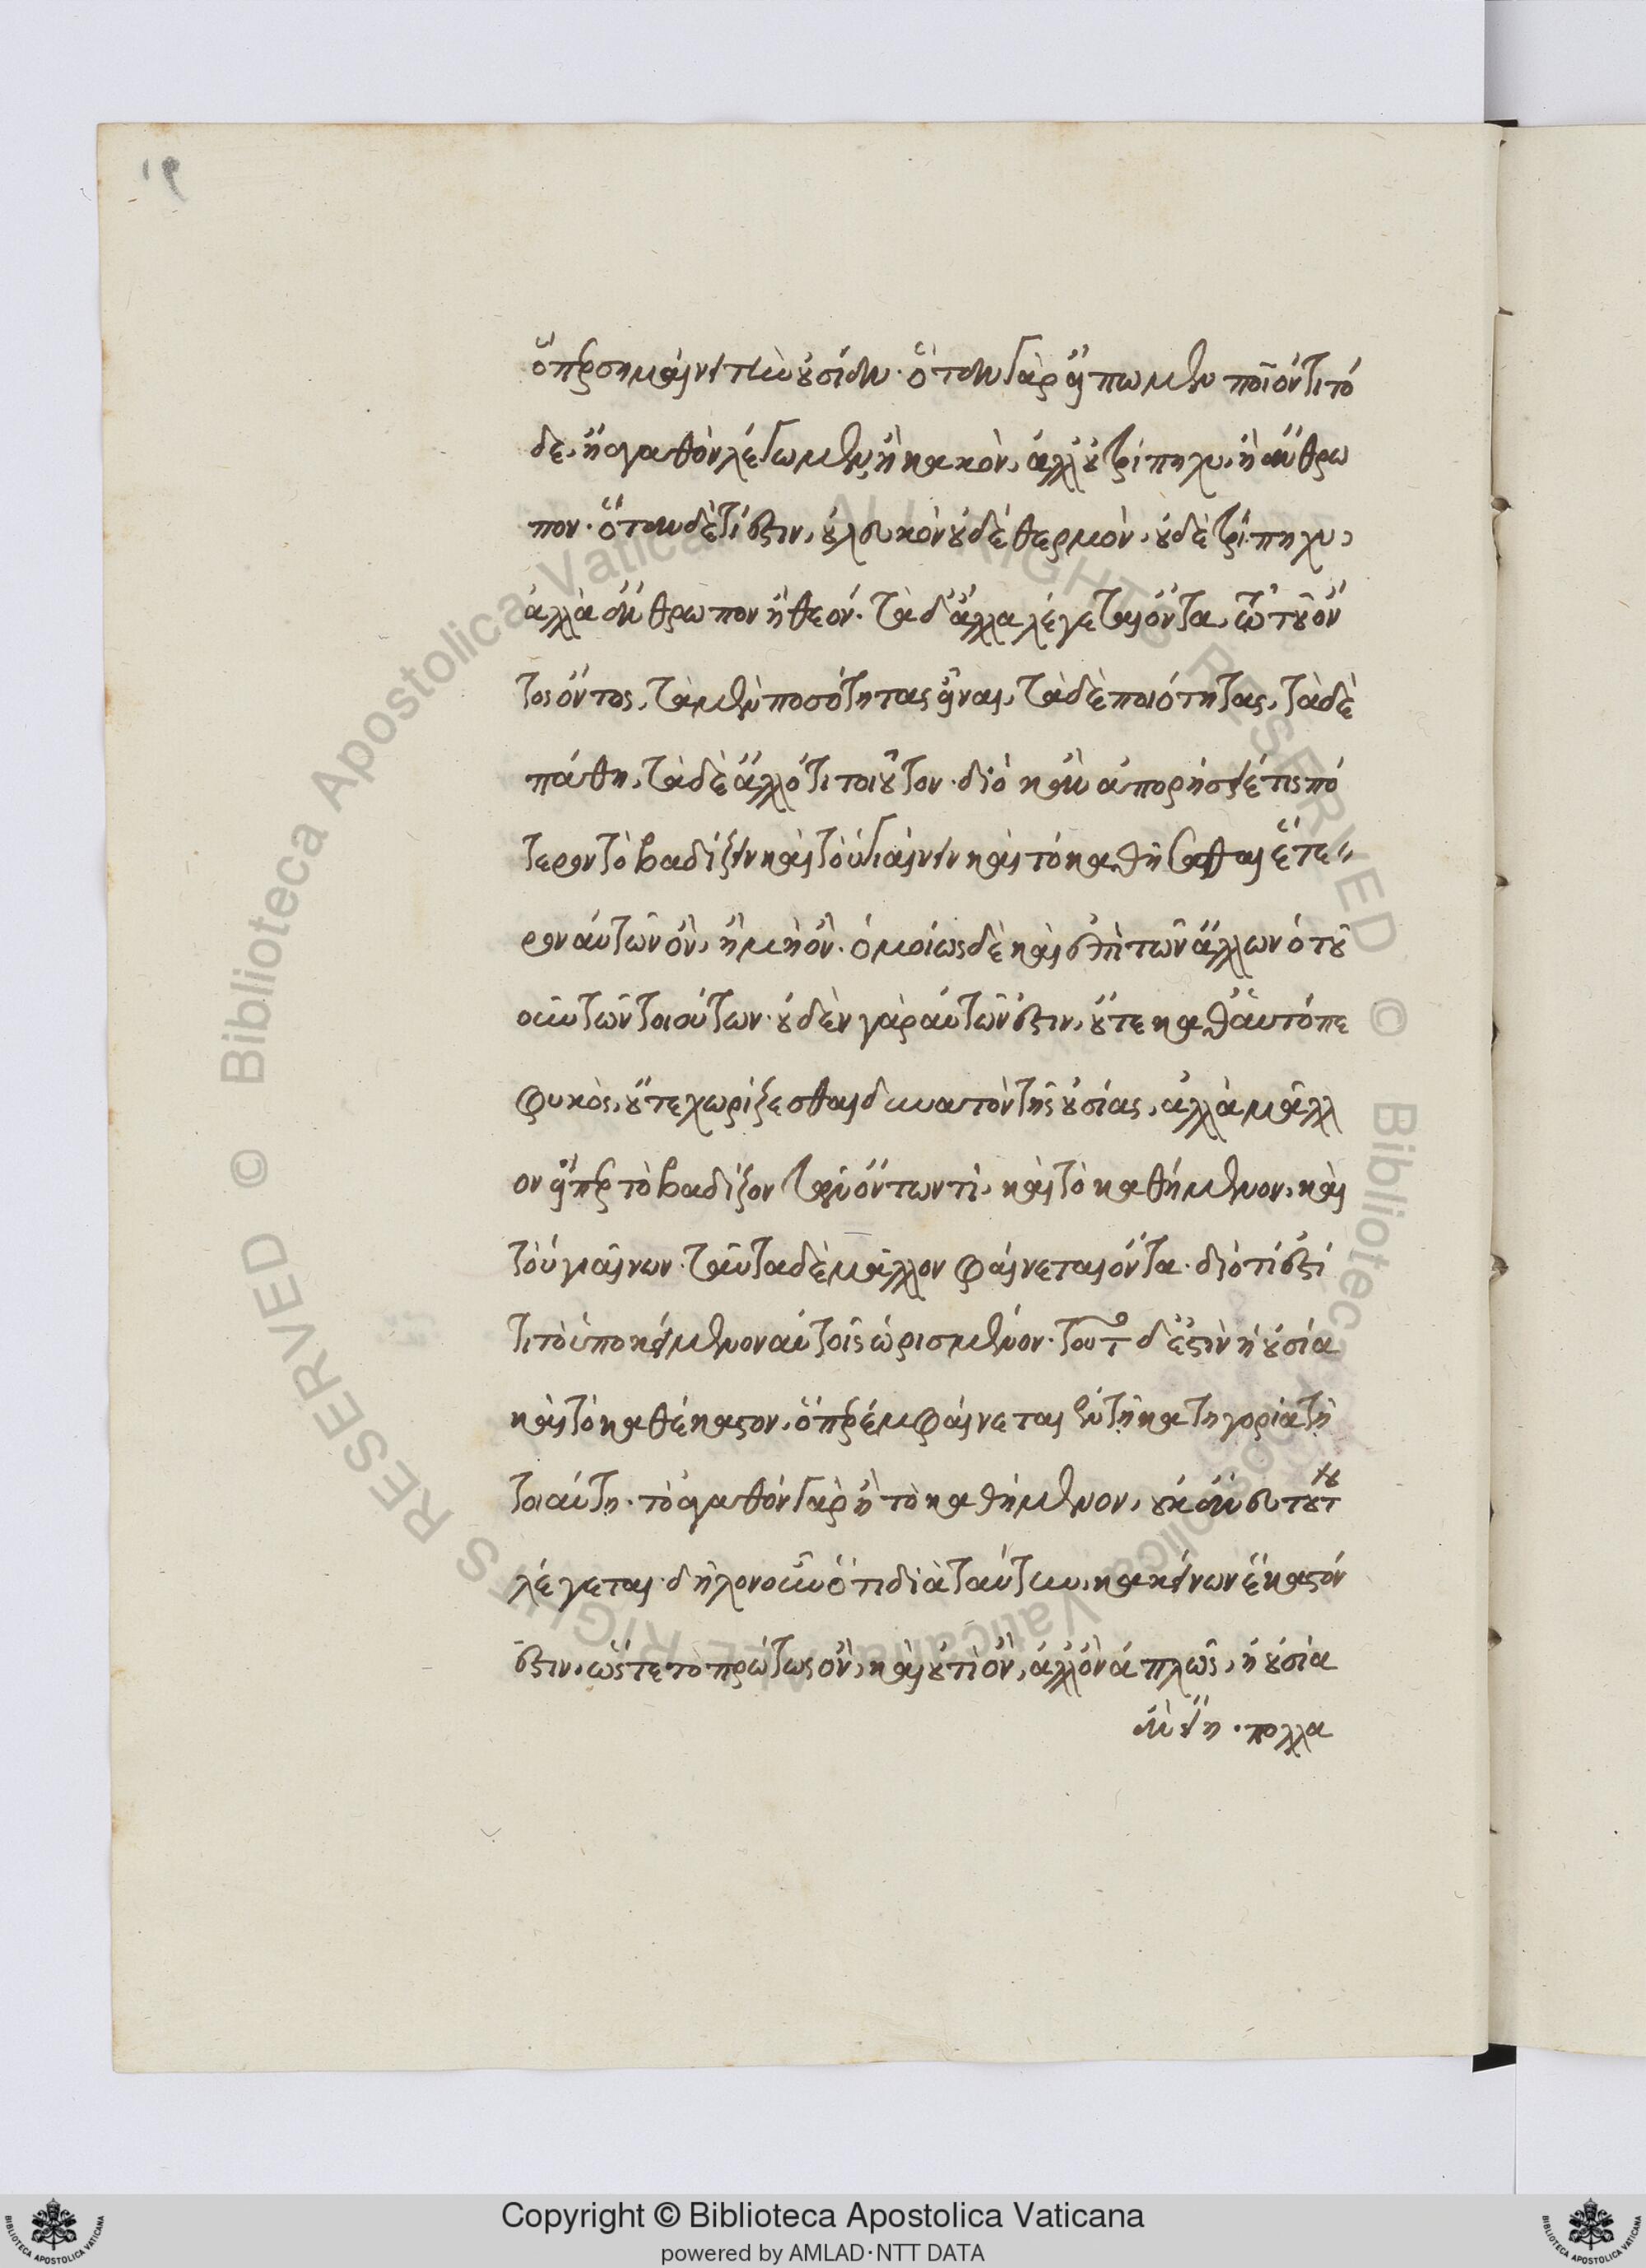 ὅπερ σημαίνει τὴν οὐσίαν. ὅταν γὰρ εἴπωμεν ποῖόν τι τό
δε, ἢ ἀγαθὸν λέγωμεν, ἢ κακόν, ἀλλ' οὐ τρίπηχυ, ἢ ἄνθρω
πον. ὅταν δὲ τί ἐστιν, οὐ λευκὸν οὐδὲ θερμὸν, οὐδὲ τρίπηχυ,
ἀλλὰ ἄνθρωπον ἢ θεόν. τὰ δ' ἄλλα λέγεται ὄντα, τῷ τοῦ ὄν
τος ὄντος, τὰ μὲν ποσότητας εἶναι, τὰ δὲ ποιότητας, τὰ δὲ
πάθη, τὰ δὲ ἄλλό τι τοιοῦτον. διὸ κἂν ἀπορήσειέ τις πό
τερον τὸ βαδίζειν καὶ τὸ ὑγιαίνειν καὶ τὸ καθῆσθαι ἕτε
ρον αὐτῶν ὂν, ἢ μὴ ὄν. ὁμοίως δὲ καὶ ἐπὶ τῶν ἄλλων ὁτου
οῦν τῶν τοιούτων. οὐδὲν γὰρ αὐτῶν ἐστιν, οὔτε καθ' αὑτὸ πε
φυκὸς, οὔτε χωρίζεσθαι δυνατὸν τῆς οὐσίας, ἀλλὰ μᾶλλ
ον εἴπερ τὸ βαδίζον τῶν ὄντων τὶ, καὶ τὸ καθήμενον, καὶ
τὸ ὑγιαῖνων. ταῦτα δὲ μᾶλλον φαίνεται ὄντα. διότι ἐστί
τι τὸ ὑποκείμενον αὐτοῖς ὡρισμένον. τοῦτο δ' ἐστὶν ἡ οὐσία
καὶ τὸ καθέκαστον, ὅπερ ἐμφαίνεται ἐν τῇ κατηγορίᾳ τῇ
τοιαύτῃ. τὸ ἀγαθὸν γὰρ ἢ τὸ καθήμενον, οὐκ ἄνευ τούτου
λέγεται. δῆλον οὖν ὅτι διὰ ταύτην, κἀκείνων ἕκαστόν
ἐστιν, ὥστε τὸ πρώτως ὂν, καὶ οὐ τὶ ὂν, ἀλλ' ὂν ἁπλῶς, ἡ οὐσία
ἂν εἴη. πολλα
Copyright © Biblioteca Apostolica Vaticana
powered by AMLAD·NTT DATA